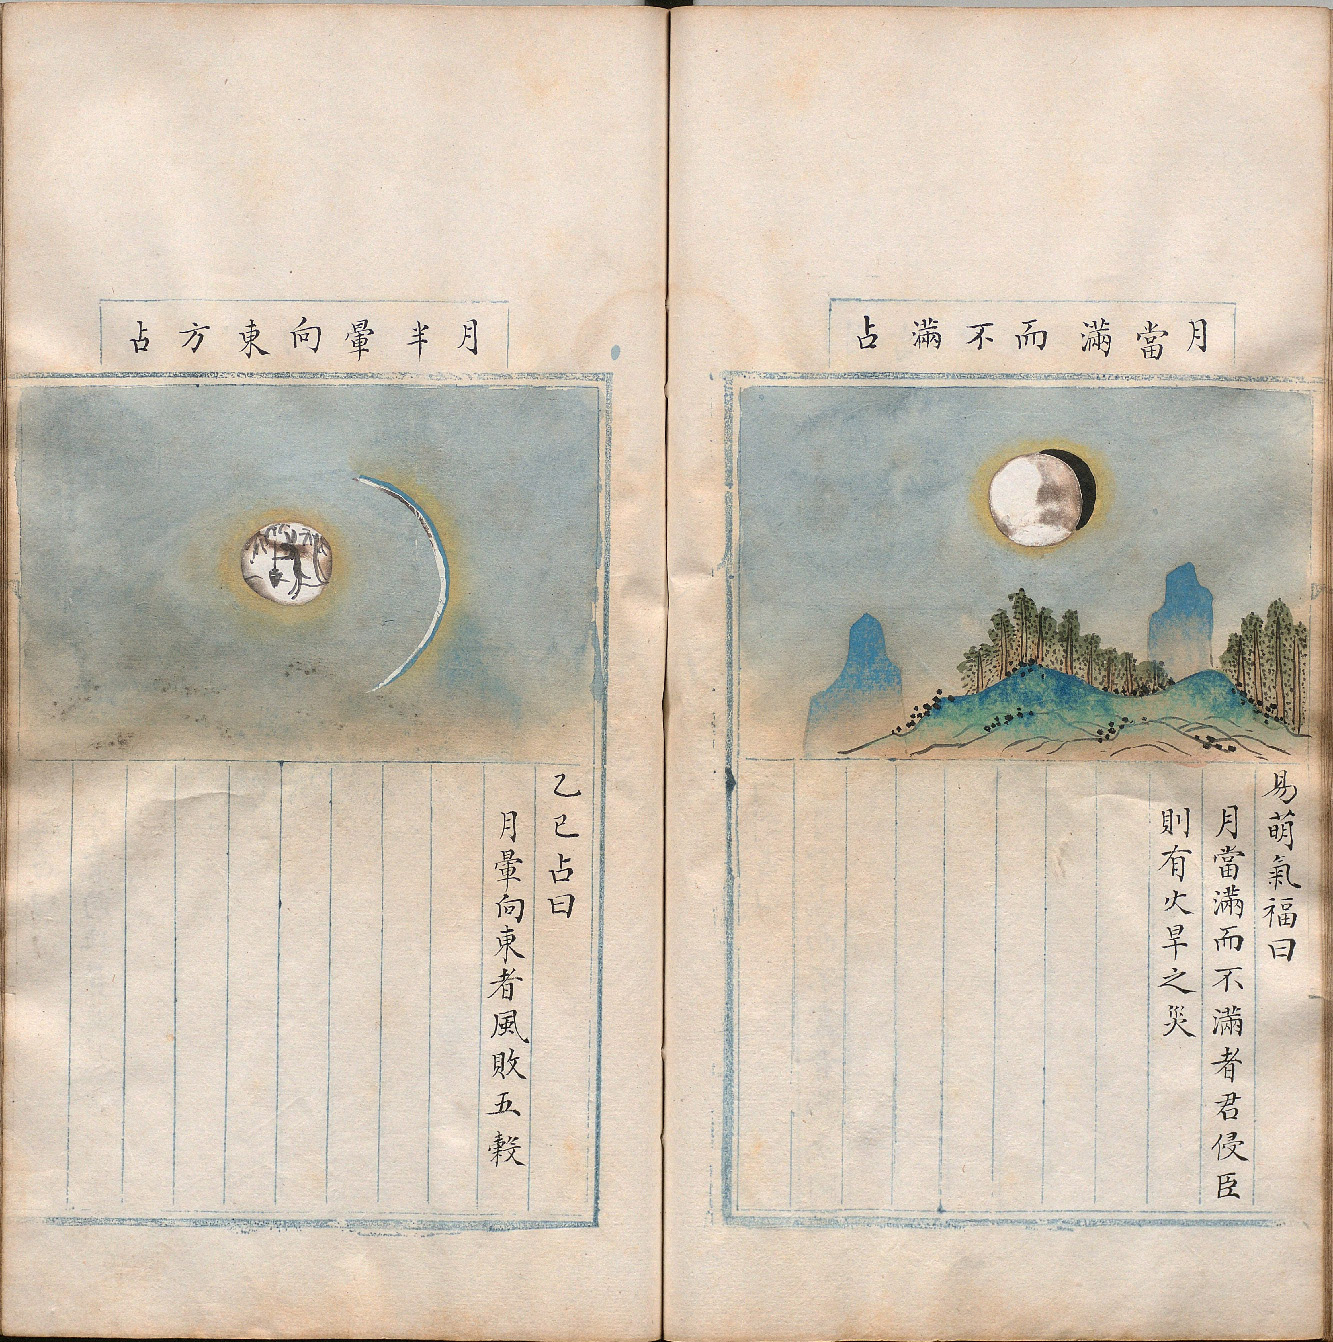 月當滿而不滿占
易萌氣福曰
月當滿而不滿者君侵臣
則有火旱之災
月半暈向東方占
乙巳占曰
月暈向東者風敗五糓